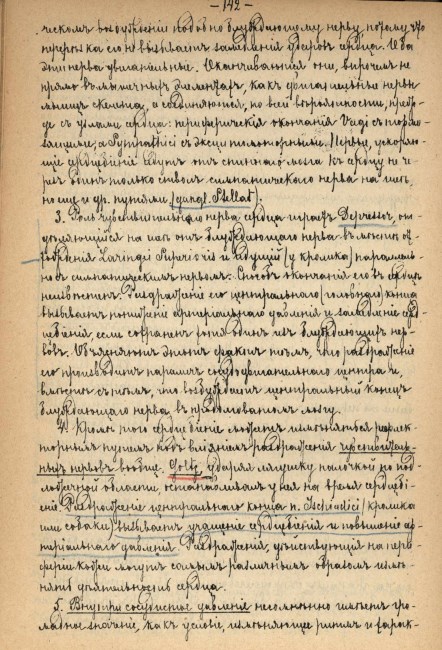 – 142 –
ческомъ возбужденіи подобно блуждающему нерву, потому что
перерѣзка его не вызываетъ замедленія ударовъ сердца. И оба
эти нерва двигательные. Оканчиваются они, впрочемъ не
прямо въ мышечныхъ элементахъ, какъ двигательные нервы
мышцъ скелета, а соединяются, по всей вѣроятности, преж-
де съ узлами сердца: периферическія окончанія Vagi съ тормо-
зящими, а Sympathici съ эксцитомоторными. Нервы, ускоряю-
щіе сердцебіеніе идутъ отъ спиннаго мозга къ сердцу не че-
резъ одинъ только стволъ симпатическаго нерва на шеѣ,
но еще и др. путями (gangl. Stellat).
3. Роль чувствительнаго нерва сердца играетъ Depressor, от-
дѣляющійся на шеѣ отъ блуждающаго нерва въ мѣстѣ от-
хожденія Laringei Superioris и идущій (у кролика) параллель-
но съ симпатическимъ нервомъ. Способъ окончанія его въ сердцѣ
неизвѣстенъ. Раздраженіе его центральнаго (головнаго) конца
вызываетъ пониженіе артеріальнаго давленія и замедленіе серд-
цебіеній, если сохраненъ хотя одинъ изъ блуждающихъ нер-
вовъ. Объясняютъ этотъ фактъ тѣмъ, что раздраженіе
его производитъ параличъ сосудодвигательнаго центра и,
вмѣстѣ съ тѣмъ, что возбуждаетъ центральный конецъ
блуждающаго нерва въ продолговатомъ мозгу.
4. Кромѣ того сердцебіеніе можетъ измѣняться рефлек-
торнымъ путемъ подъ вліяніемъ раздраженія чувствитель-
ныхъ нервовъ вообще. Goltz, ударяя лягушку палочкой по под-
ложечной области, останавливалъ у нея на время сердцебіе-
ніе. Раздраженіе центральнаго конца n. Ischiadici (кролика
или собаки) вызываетъ учащеніе сердцебіеній и повышеніе ар-
теріальнаго давленія. Раздраженія, дѣйствующія на пери-
ферію кожи могутъ самымъ различнымъ образомъ измѣ-
нять дѣятельность сердца.
5. Внутрисосудистое давленіе несомнѣнно имѣетъ гро-
мадное значеніе, какъ условіе, измѣняющее ритмъ и харак-